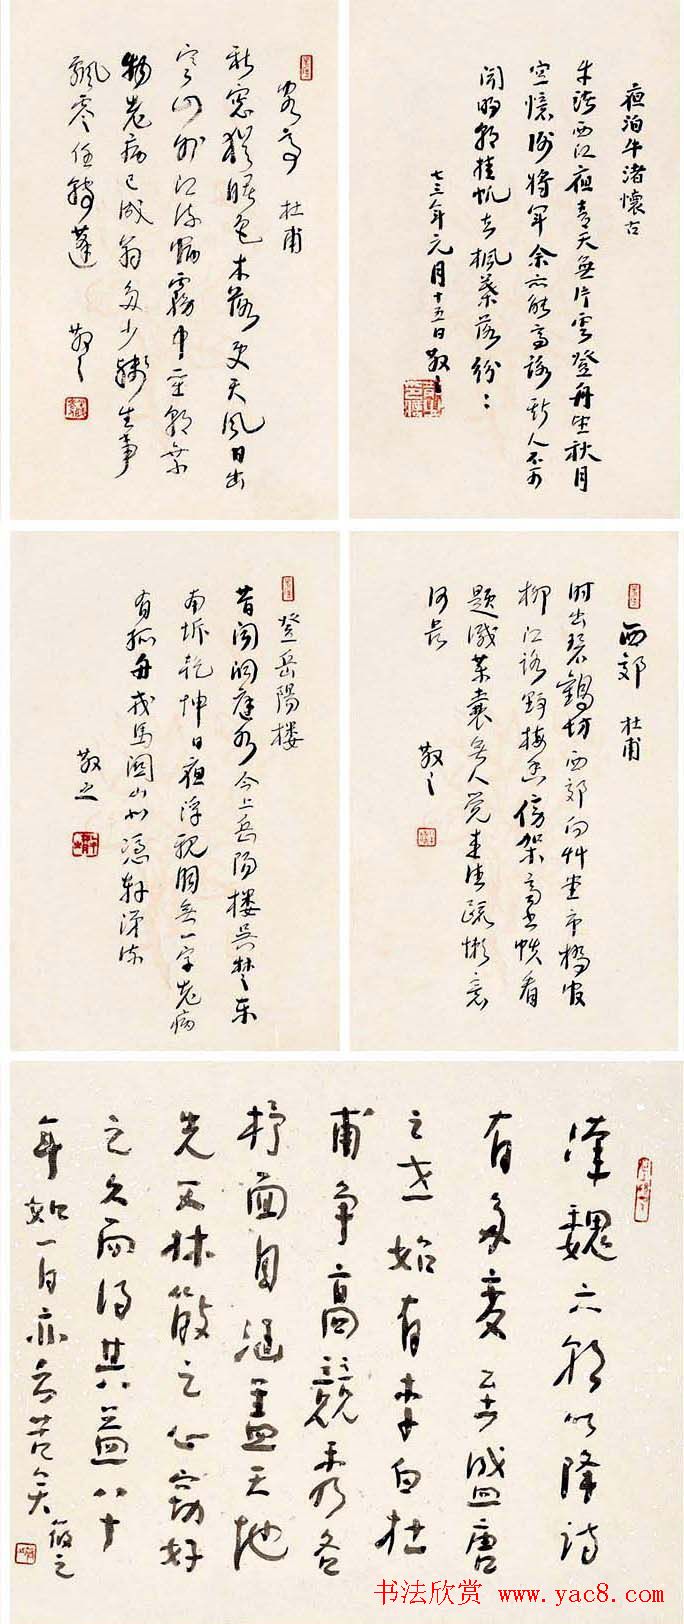 夜泊牛渚懷古
牛渚西江夜青天無片雲登舟望秋月
空憶謝將軍余亦能高詠斯人不可
聞明朝挂帆去楓葉落紛〻
七三年元月十五日敬之
客亭 杜甫
秋窓猶曙色木落更天風日出
寒山外江流宿霧中聖朝無棄
物老病已成翁多少殘生事
飄零任轉蓬 敬之
西郊 杜甫
时出碧鷄坊西郊向艸堂市橋官
柳江路野梅香傍架齊書帙看
題減藥囊無人覺来往疏懶意
何長 敬之
登岳陽楼
昔闻洞庭水今上岳阳楼吳楚东
南坼乾坤日夜浮親朋無一字老病
有孤舟戎馬関山北憑軒涕流
敬之
漢魏六朝以降詩
有多变至盛唐
之世始有李白杜
甫争高競秀各
抒面目涵蓋天地
先父林散之心窃好
之久而得其益八十
年如一日亦云苦矣 筱之
书法欣赏 www.yac8.com